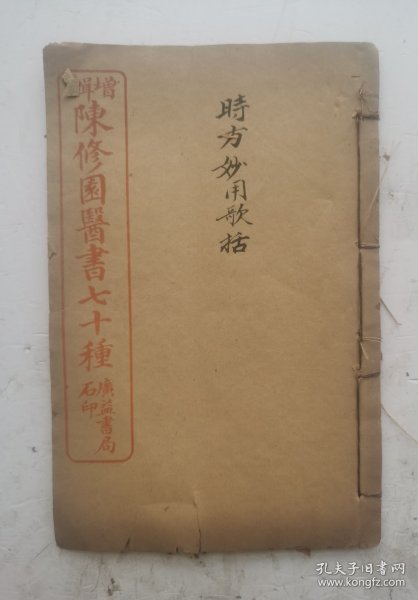 增輯
陳修園醫書七十種
廣益書局
石印
時方妙用歌括
孔夫子旧书网
www.kongfz.com